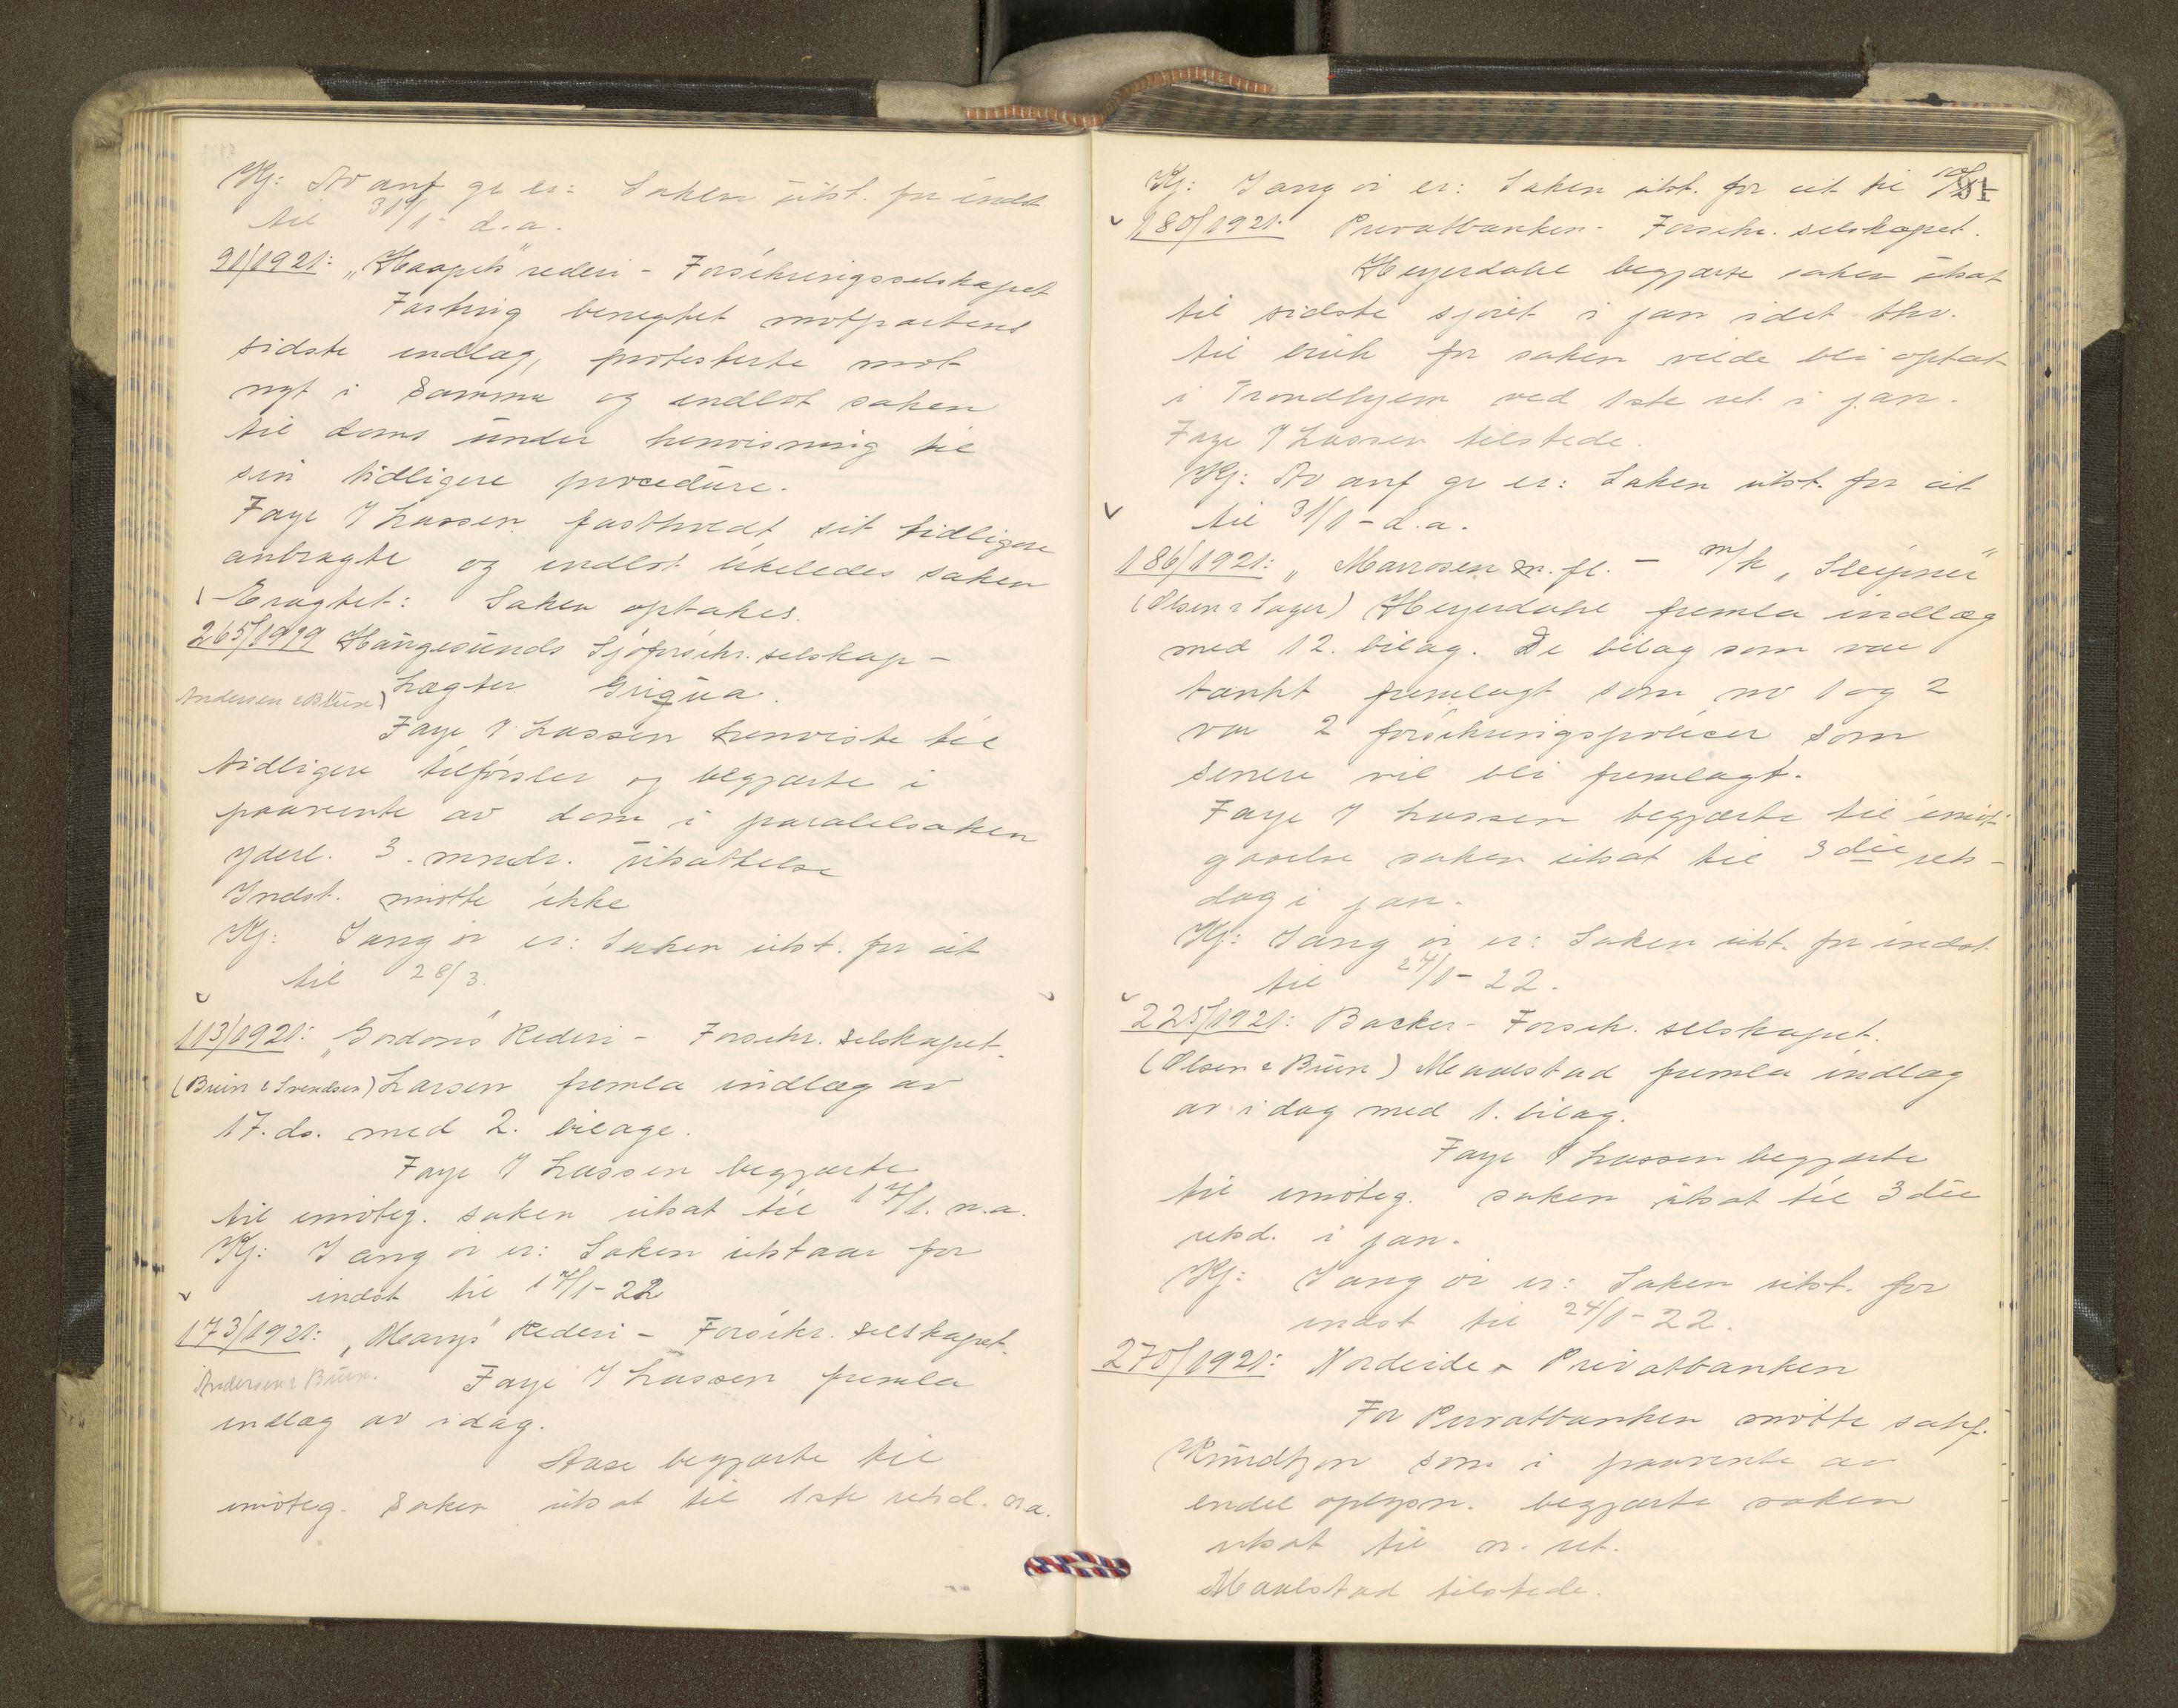 Kj: Av anf gr er: Saken utst. for indst
til 31/1 - d.a.
91/1921: „Haapets" rederi - Forsikringsselskapet
Fasting benegtet motpartens
sidste indlæg, protesterte mot
nyt i samme og indlot saken
til doms under henvisning til
sin tidligere procedure.
Faye J Lassen fastholdt sit tidligere
anbragte og indlot likeledes saken
Eragtet: Saken optakes.
265/1919 Haugesunds Sjøforsikr. selskap -
Andersen & Bruun) Lægter Grigua.
Faye J Lassen henviste til
tidligere tilførsler og begjærte i
paavente av dom i paralelsaken
yderl. 3. mndr. utsættelse
Indst. møtte ikke
Kj: I ang ør er: Saken utst. for cit
til 28/3.
113/1921: „Gordons" Rederi - Forsikr. selskapet.
(Bruun & Svendsen) Larsen femla indlæg av
17. ds. med 2. bilage.
Faye J Lassen begjærte
til imøteg. saken utsat til 17/1. n.a.
Kj: I ang ør er: Saken utstaar for
indst til 17/1-22
173/1921: „Marys" Rederi - Forsikr. selskapet.
Andersen & Bruun. Faye J Lassen fremla
indlæg av idag.
Aase begjærte til
imøteg. saken utsat til 1ste retsd. n.a.
Kj: I ang ør er: Saken utst. for cit til
81
180/1921: Privatbanken - Forsikr. selskapet.
Heyerdahl begjærte saken utsat
til sidste sjøret i jan idet thv.
til bruk for saken vilde bli optat
i Trondhjem ved 1ste ret i jan.
Faye J Lassen tilstede.
Kj: Av anf gr er: Saken utst. for cit
til 31/1 - d.a.
186/1921: „Marrosen m. fl. - m/k „Sleipner"
(Olsen & Sager) Heyerdahl fremla indlæg
med 12. bilag. De bilag som var
tænkt fremlagt som no 1 og 2
var 2 forsikringspolicer som
senere vil bli fremlagt.
Faye J Lassen begjærte til imøt-
gaaelse saken utsat til 3die rets-
dag i jan.
Kj: I ang ør er: Saken utst. for indst.
til 24/1 - 22.
225/1921: Backer - Forsik. selskapet.
(Olsen & Bruun) Maalstad fremla indlæg
av idag med 1. bilag.
Faye J Lassen begjærte
til imøteg. saken utsat til 3die
retsd. i jan.
Kj: I ang ør er: Saken utst. for
indst til 24/1 - 22.
270/1921: Nordeide - Privatbanken
For Privatbanken møtte sakf.
Knudtzon som i paavente av
endel oplysn. begjærte saken
utsat til n. ret.
Maalstad tilstede.